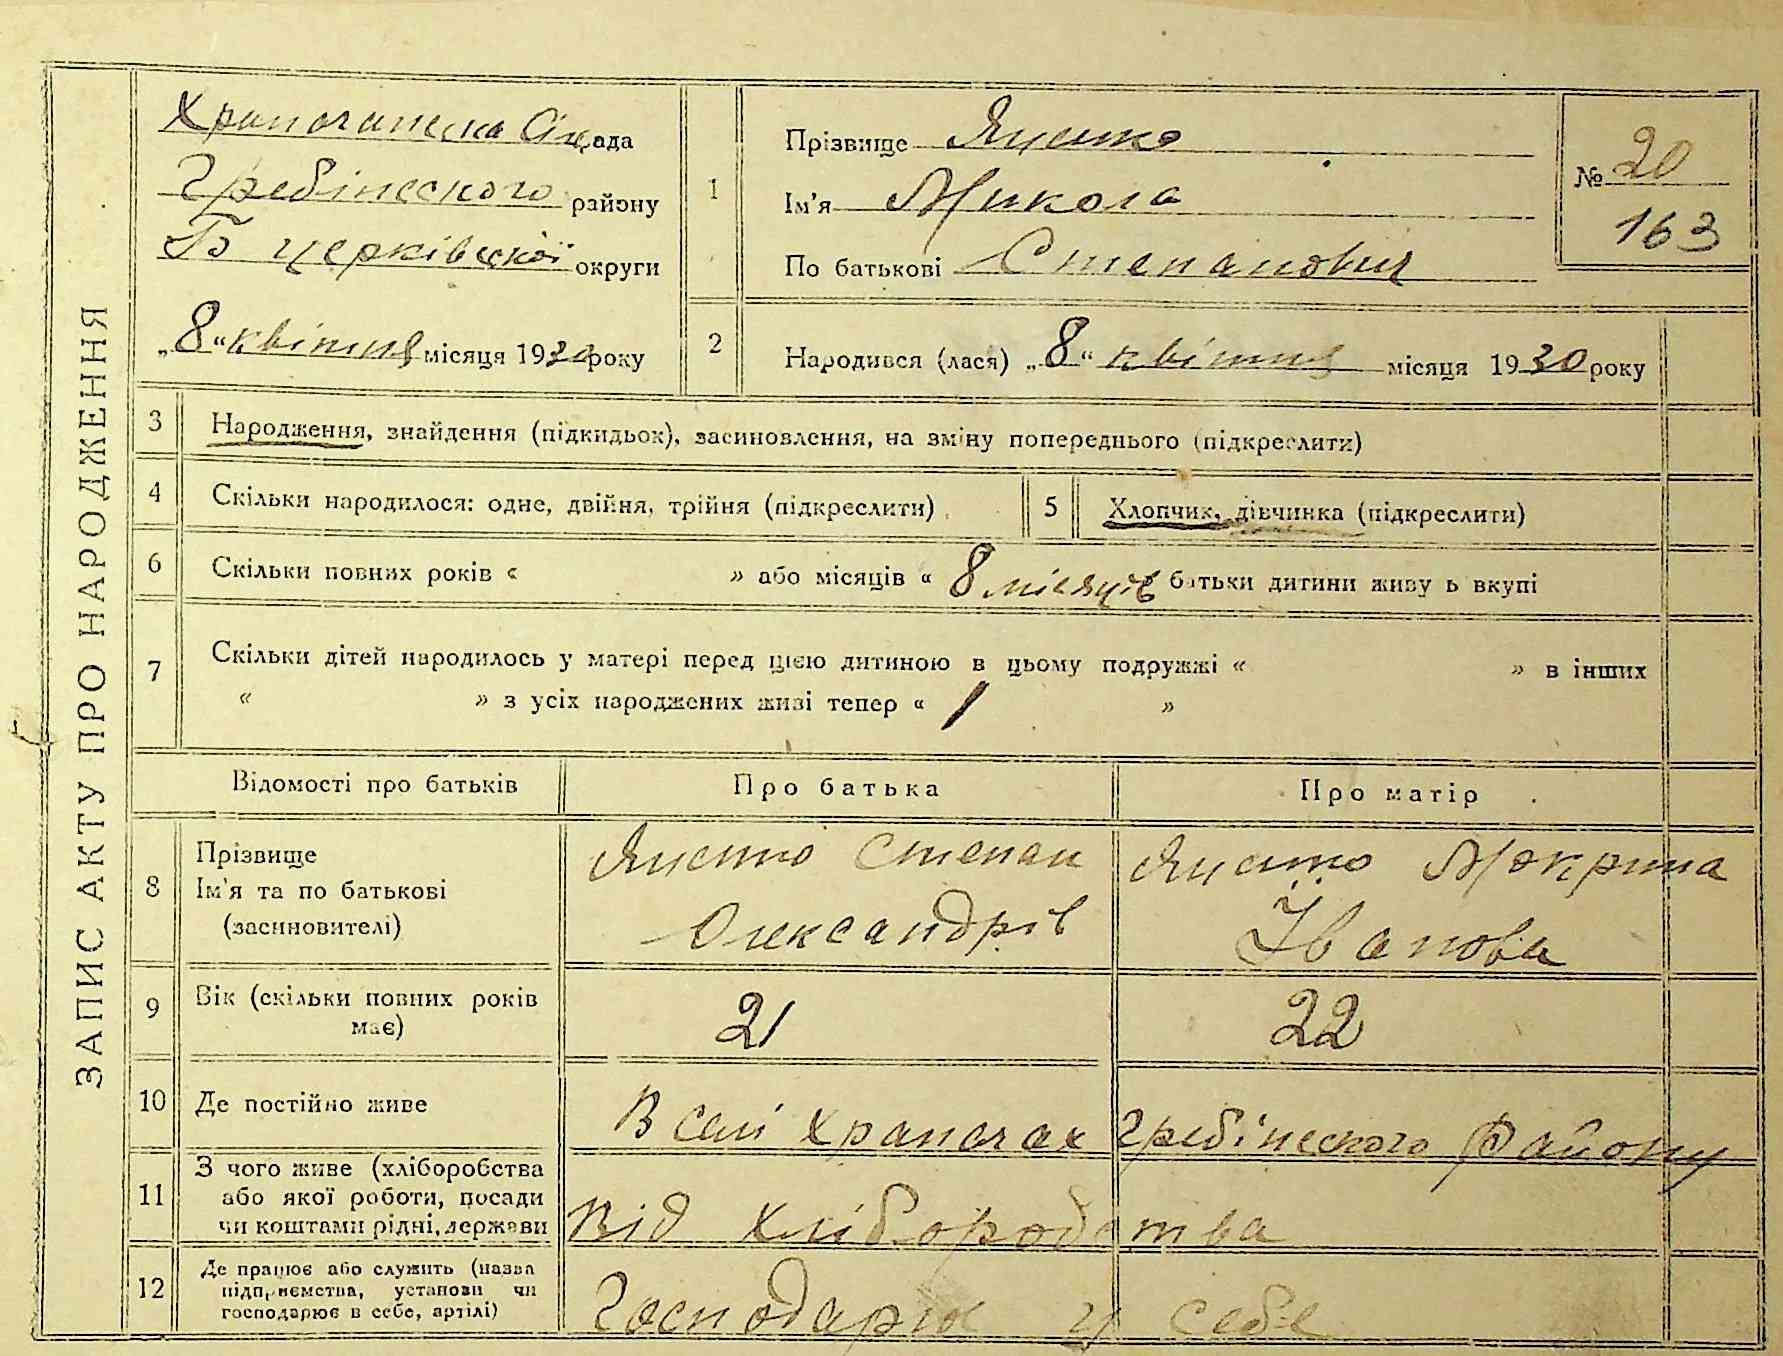 ЗАПИС АКТУ ПРО НАРОДЖЕННЯ
Храпачанська Сільрада
Гребінського району
Б церківської округи
„8“ квітня місяця 1930 року
1
Прізвище Яценко
Ім'я Микола
По батькові Степанович
№ 20
163
2
Народився (лася) „8“ квітня місяця 1930 року
3 Народження, знайдення (підкидьок), засиновлення, на зміну попереднього (підкреслити)
4 Скільки народилося: одне, двійня, трійня (підкреслити)
5 Хлопчик, дівчинка (підкреслити)
6 Скільки повних років « » або місяців « 8 місяців батьки дитини живу ь вкупі
7 Скільки дітей народилось у матері перед цією дитиною в цьому подружжі « » в інших
« » з усіх народжених живі тепер « 1 »
Відомості про батьків Про батька Про матір
8 Прізвище
Ім'я та по батькові
(засиновителі)
Яценко Степан
Олександрів
Яценко Мокрина
Іванова
9 Вік (скільки повних років
має)
21 22
10 Де постійно живе
В селі Храпачах Гребінського Району
11 З чого живе (хліборобства
або якої роботи, посади
чи коштами рідні, держави
Від хліборобства
12 Де працює або служить (назва
підприємства, установи чи
господарює в себе, артілі)
Господарює у себе